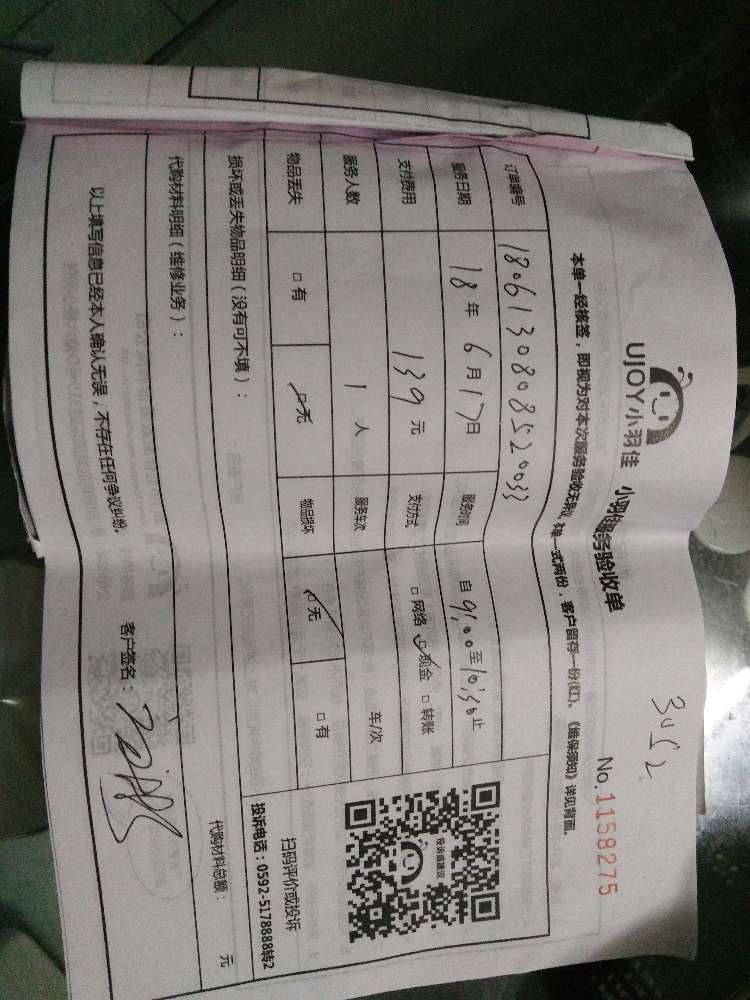 3452
UJOY小羽佳 小羽佳服务验收单
No.1158275
本单一经核签，即视为对本次服务验收无异议，本单一式两份，客户留存一份(红)。《维保须知》详见背面。
订单编号 1806130808520033
服务日期 18年6月17日 服务时间 自9:00至10:30止
支付费用 139元 支付方式 □网络 ☑现金 □转账
服务人数 1人 服务车次 车/次
物品丢失 □有 ☑无 物品损坏 ☑无 □有
投诉或建议
扫码评价或投诉
投诉电话：0592-5178888转2
损坏或丢失物品明细（没有可不填）：
代购材料明细（维修业务）：
代购材料总额： 元
以上填写信息已经本人确认无误，不存在任何争议纠纷。
客户签名：